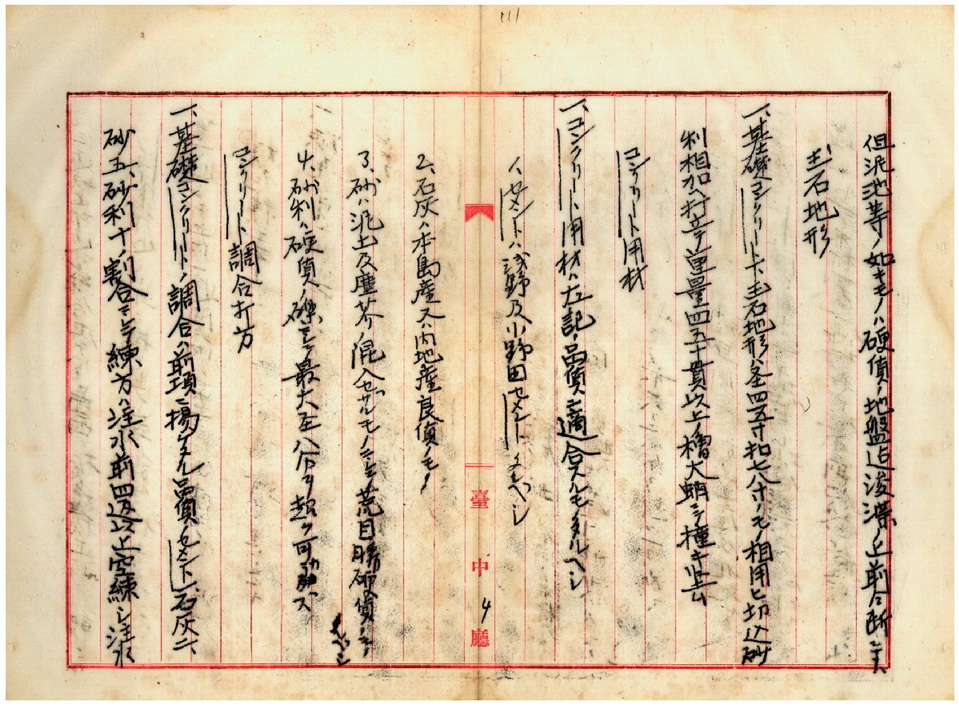 但泥池等ノ如キモノハ硬質ノ地盤迄浚渫ノ上前仝断
玉石地形
一、基礎コンクリート下玉石地形ハ全四五寸扣七八寸ノモノ相用ヒ切込砂
利相加ヘ打立テ重量四五十貫以上ノ櫓大蛸ニテ橦キ止ム
コンクリート用材
一、コンクリート用材ハ左記ノ品質ニ適合スルモノタルベシ
1、セメントハ浅野及小野田セメントタルベシ
2、石灰ハ本島産又ハ内地産良質ノモノ
3、砂ハ泥土及塵芥ノ混入セザルモノニシテ荒目
4、砂利ハ硬質ノ礫ニシテ最大五八分ヲ超ユ可
コンクリート調合打方
一、基礎コンクリートノ調合ハ前項ニ揚ケタル品質ノセメント一、石灰二、
砂五、砂利十ノ割合ニシテ練方ハ注水前四返以上空練シ注水
臺中廳
4